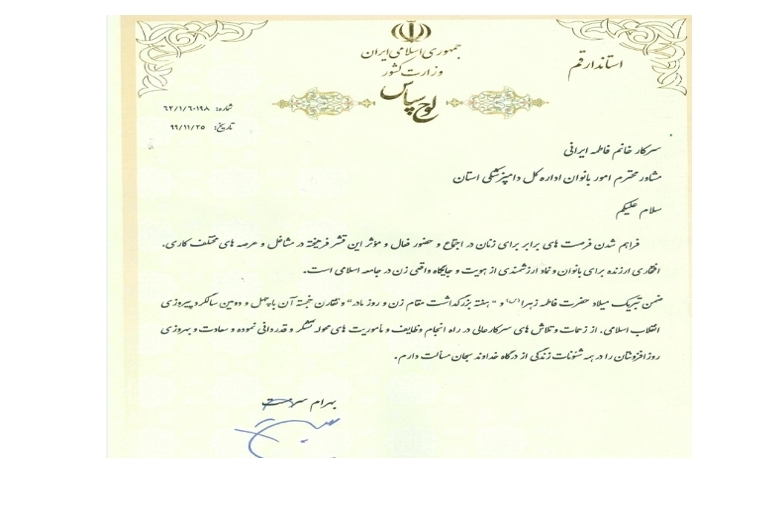 جمهوری اسلامی ایران
وزارت کشور
استاندار قم
لوح سپاس
شماره: ۶۲/۱/۶۰۱۹۸
تاریخ: ۹۹/۱۱/۲۵
سرکار خانم فاطمه ایرانی
مشاور محترم امور بانوان اداره کل دامپزشکی استان
سلام علیکم
فراهم شدن فرصت های برابر برای زنان در اجتماع و حضور فعال و مؤثر این قشر فرهیخته در مشاغل و عرصه های مختلف کاری،
افتخاری ارزنده برای بانوان و نماد ارزشمندی از هویت و جایگاه واقعی زن در جامعه اسلامی است.
ضمن تبریک میلاد حضرت فاطمه زهرا(س) و " هفته بزرگداشت مقام زن و روز مادر" و تقارن خجسته آن با چهل و دومین سالگرد پیروزی
انقلاب اسلامی، از زحمات و تلاش های سرکارعالی در راه انجام وظایف و مأموریت های محوله تشکر و قدردانی نموده و سعادت و بهروزی
روزافزونتان را در همه شئونات زندگی از درگاه خداوند سبحان مسألت دارم.
بهرام سرمست